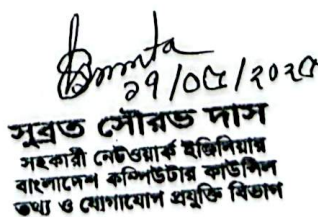 ২৭/০৫/২০২৫
সুব্রত সৌরভ দাস
সহকারী নেটওয়ার্ক ইঞ্জিনিয়ার
বাংলাদেশ কম্পিউটার কাউন্সিল
তথ্য ও যোগাযোগ প্রযুক্তি বিভাগ